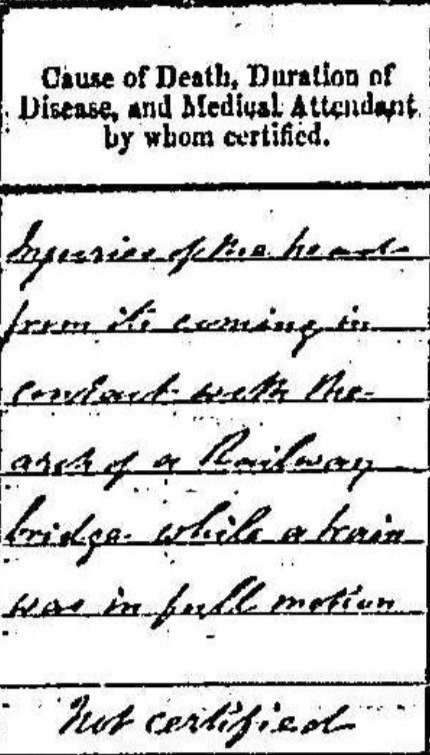 Cause of Death, Duration of
Disease, and Medical Attendant
by whom certified.
Injuries of the head
from its coming in
contact with the
arch of a Railway
bridge while a train
was in full motion
Not certified